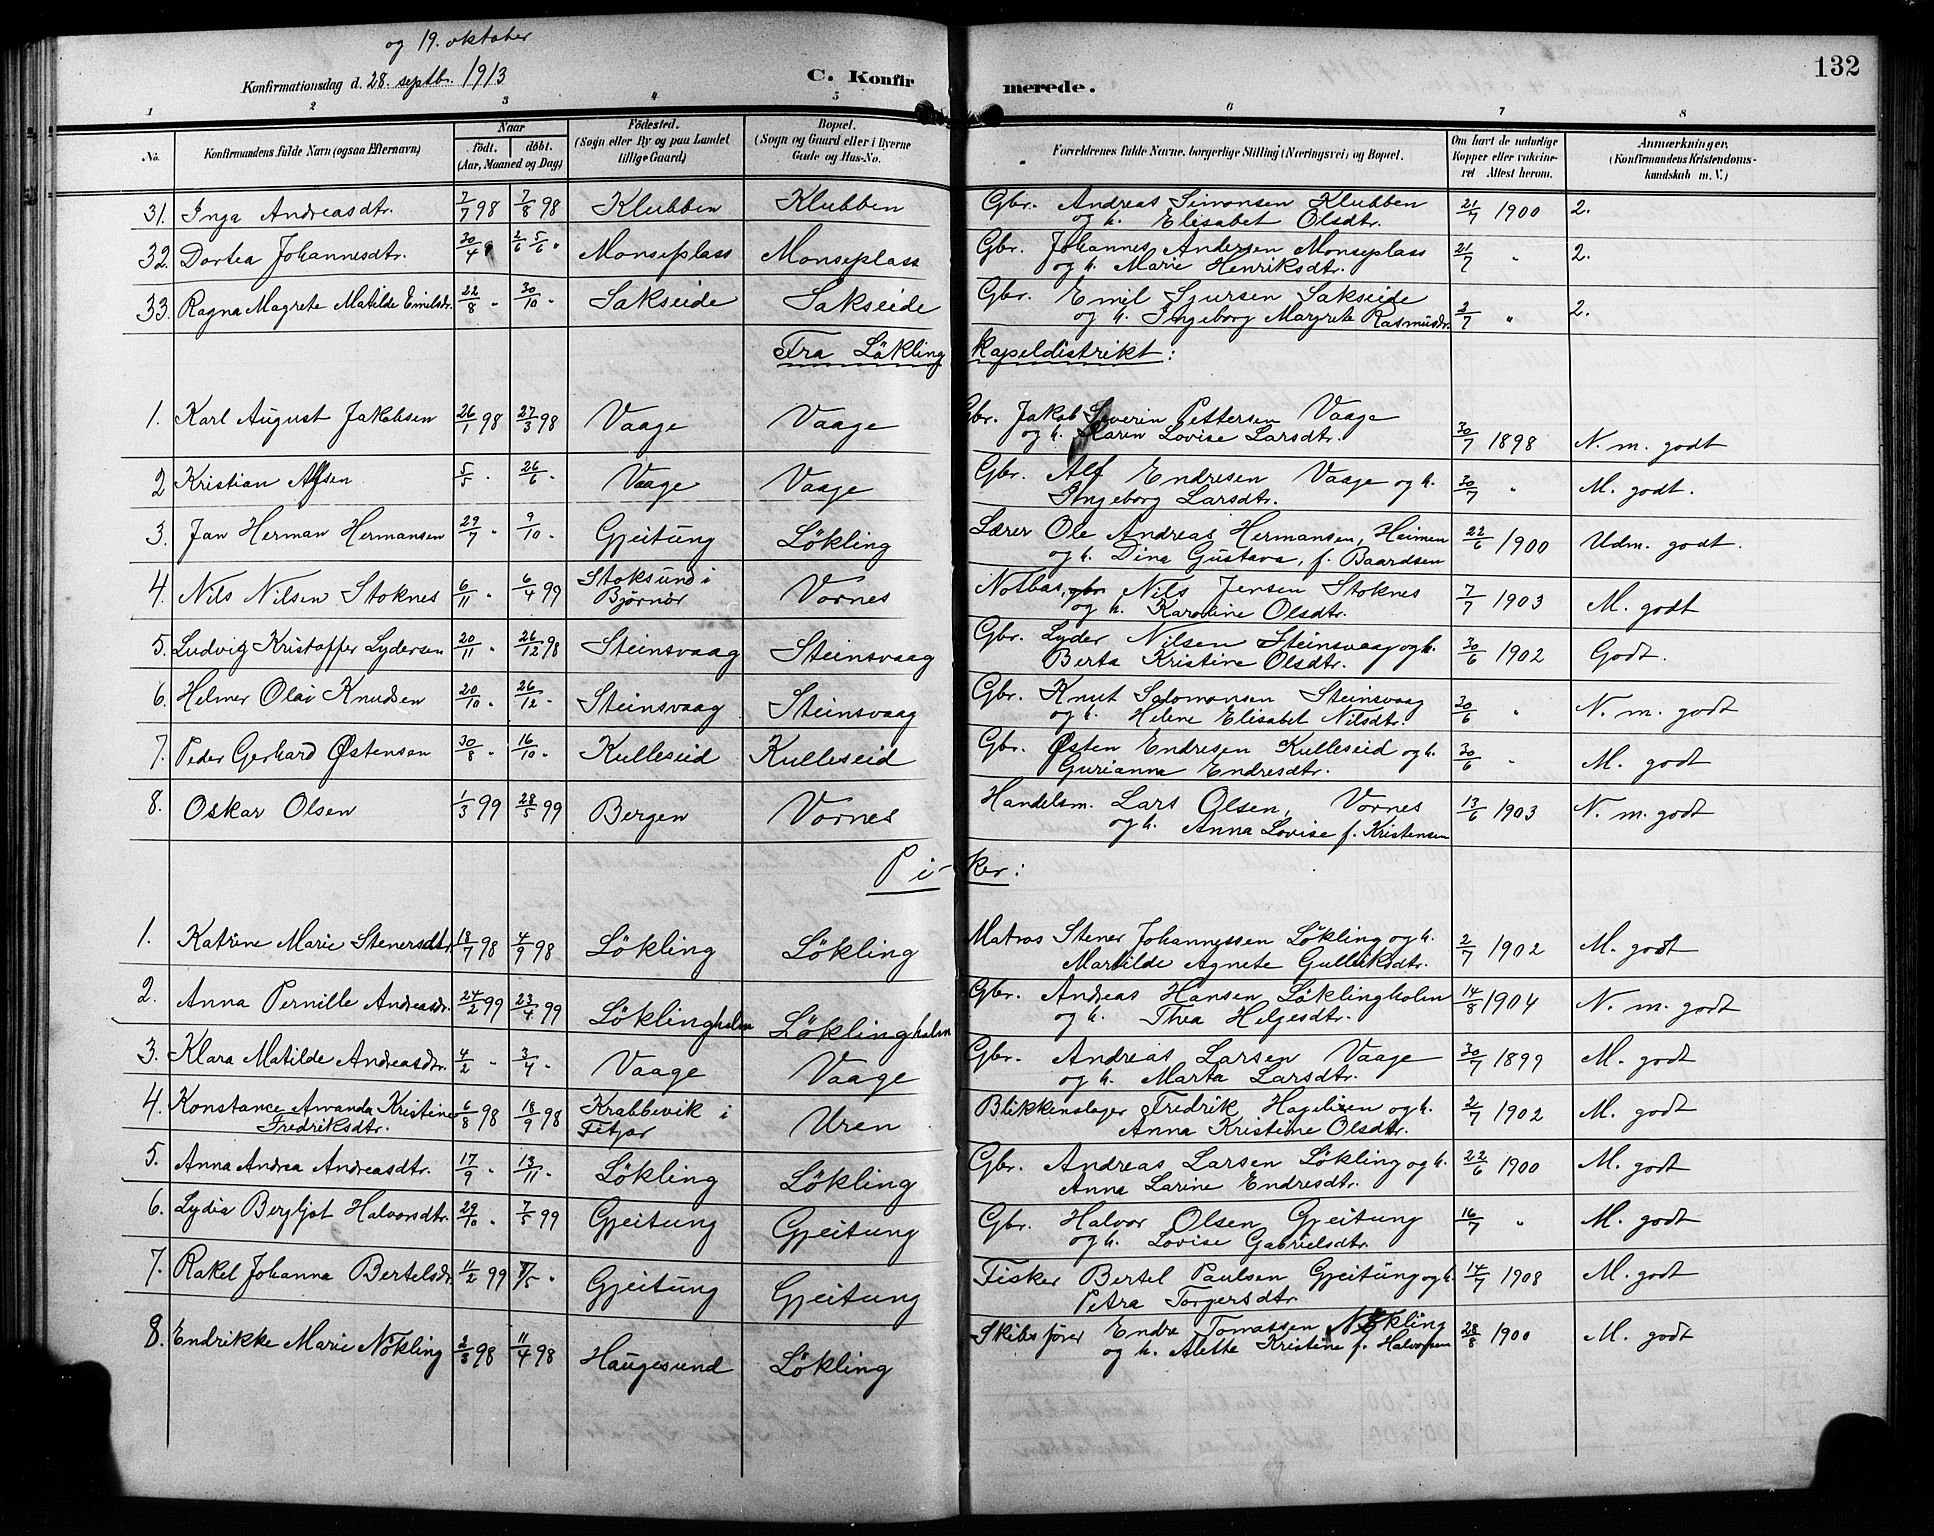 og 19. oktober
Konfirmationsdag d. 28. septbr. 1913 C. Konfirmerede. 132
1 2 3 4 5 6 7 8
No. Konfirmandens fulde Navn (ogsaa Efternavn) Naar født. døbt. (Aar, Maaned og Dag) Fødested. (Sogn eller By og paa Landet tillige Gaard) Bopæl. (Sogn og Gaard eller i Byerne Gade og Hus-No. Forældrenes fulde Navne, borgerlige Stilling (Næringsvei) og Bopæl. Om havt de naturlige Kopper eller vakcineret Attest herom. Anmærkninger. (Konfirmandens Kristendomskundskab m. V.)
31. Inga Andreasdtr. 7/7 98 7/8 98 Klubben Klubben Gbr. Andreas Simonsen Klubben 21/7 1900 2.
og h. Elisabet Olsdtr.
32. Dortea Johannesdtr. 30/4 " 2/6 5/6 " Monseplass Monseplass Gbr. Johannes Andersen Monseplass 21/7 " 2.
og h. Marie Henriksdtr.
33. Ragna Magrete Matilde Emilsdr. 22/8 " 30/10 " Sakseide Sakseide Gbr. Emil Sjursen Sakseide 2/7 " 2.
og h. Ingeborg Margrete Rasmusdr.
Fra Lökling kapeldistrikt:
1. Karl August Jakobsen 26/1 98 27/3 98 Vaage Vaage Gbr. Jakob Severin Pettersen Vaage 30/7 1898 N. m. godt
og h. Karen Lovise Larsdtr.
2 Kristian Alfsen 5/5 " 26/6 " Vaage Vaage Gbr. Alf Endresen Vaage og h. 30/7 " M. godt.
Ingeborg Larsdtr.
3. Jan Herman Hermansen 29/7 " 9/10 " Gjeitung Lökling Lærer Ole Andreas Hermansen, Heimen 22/6 1900 Udm. godt.
og h. Dina Gustava, f. Baardsen
4. Nils Nilsen Stoknes 6/11 " 6/4 99 Stoksund i Bjørnør Vornes Notbas, gbr. Nils Jensen Stoknes 7/7 1903 M. godt
og h. Karoline Olsdtr.
5. Ludvig Kristoffer Lydersen 20/11 " 26/12 98 Steinsvaag Steinsvaag Gbr. Lyder Nilsen Steinsvaag og h. 30/6 1902 Godt.
Berta Kristine Olsdtr.
6. Helmer Olai Knudsen 20/10 " 26/12 " Steinsvaag Steinsvaag Gbr. Knut Salomonsen Steinsvaag 30/6 " N. m. godt
og h. Helene Elisabet Nilsdtr.
7. Peder Gerhard Østensen 30/8 " 16/10 " Kulleseid Kulleseid Gbr. Østen Endresen Kulleseid og h. 30/6 " M. godt
Gurianna Endresdtr.
8. Oskar Olsen 1/3 99 28/5 99 Bergen Vornes Handelsm. Lars Olsen, Vornes 13/6 1903 N. m. godt
og h. Anna Lovise f. Kristensen
Piker:
1. Katrine Marie Stenersdtr. 18/7 98 4/9 98 Lökling Lökling Matros Stener Johannessen Lökling og h. 2/7 1902 M. godt
Martilde Agnete Gulleiksdtr.
2. Anna Pernille Andreasdr. 24/2 99 23/4 99 Löklingholm Löklingholm Gbr. Andreas Hansen Löklingholm 14/8 1904 N. m. godt
og h. Thea Helgesdtr.
3. Klara Matilde Andreasdtr. 4/2 " 3/4 " Vaage Vaage Gbr. Andreas Larsen Vaage 30/7 1899 M. godt
og h. Marta Larsdtr.
4. Konstance Amanda Kristine Fredriksdtr. 6/8 98 18/9 98 Krabbevik i Fitjar Uren Blikkenslager Fredrik Hagelisen og h. 2/7 1902 M. godt
Anna Kristine Olsdtr.
5. Anna Andrea Andreasdtr. 17/9 " 13/11 " Lökling Lökling Gbr. Andreas Larsen Lökling og h. 22/6 1900 M. godt
Anna Larine Endresdtr.
6. Lydia Bergljot Halvorsdtr. 29/10 " 7/5 99 Gjeitung Gjeitung Gbr. Halvor Olsen Gjeitung 16/7 " M. godt
og h. Lovise Gabrielsdtr.
7. Rakel Johanna Bertelsdr. 11/2 99 7/5 " Gjeitung Gjeitung Fisker Bertel Paulsen Gjeitung og h. 14/7 1908 M. godt
Petra Torgersdtr.
8. Endrikke Marie Nökling 2/3 98 11/4 98 Haugesund Lökling Skibsfører Endre Tomassen Nökling 28/8 1900 M. godt
og h. Alette Kristine f. Halvorsen